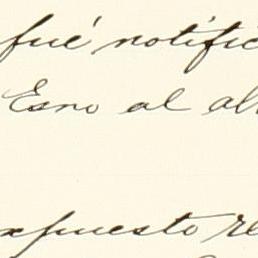 fué notific
Esno al al
xpuesto re